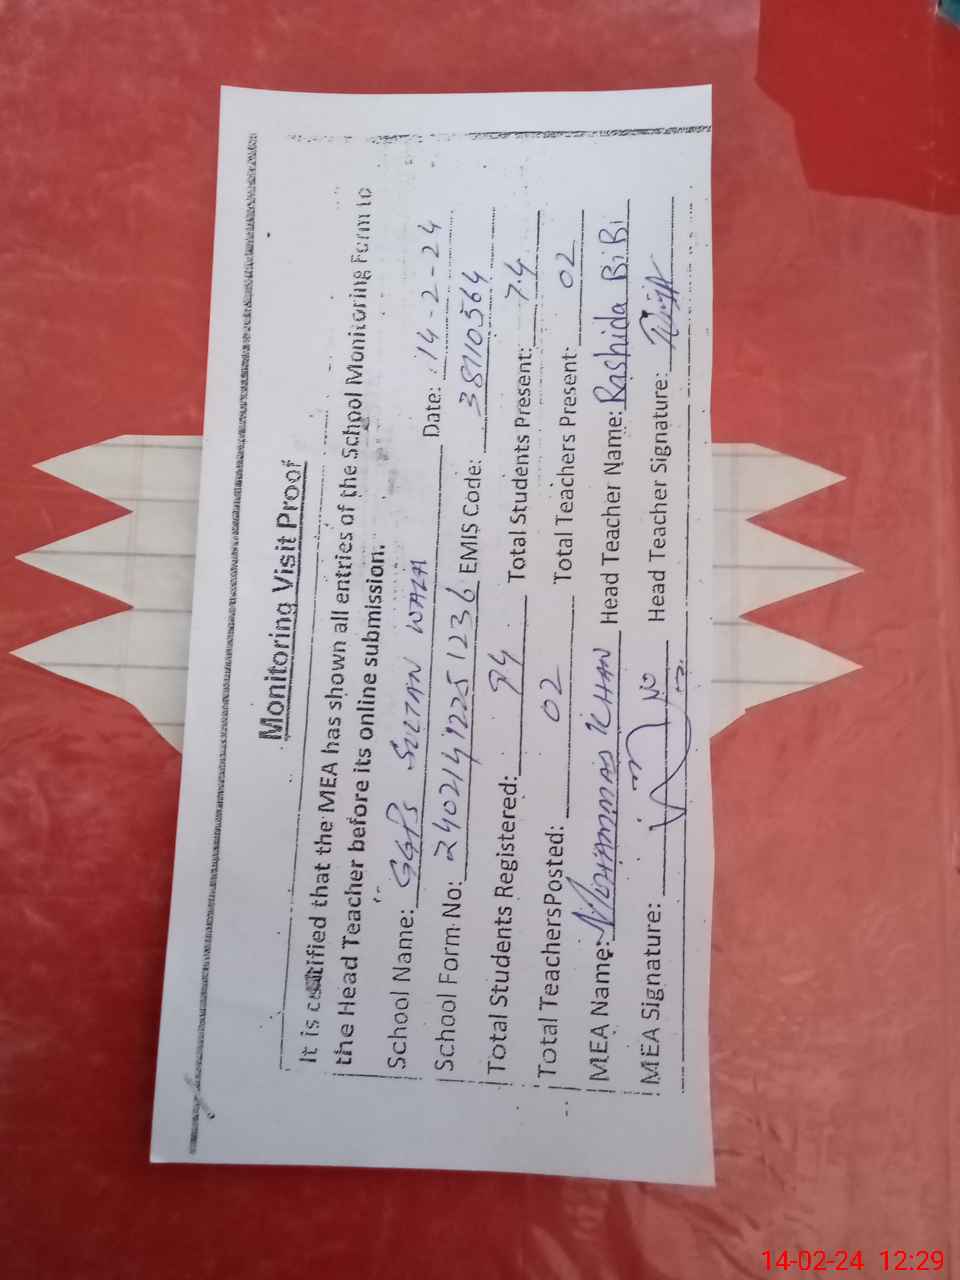 Monitoring Visit Proof
It is certified that the MEA has shown all entries of the School Monitoring Form to
the Head Teacher before its online submission.
School Name: GGPS SULTAN WAZAI Date: 14-2-24
School Form No: 24021491225 1236 EMIS Code: 38110564
Total Students Registered: 94 Total Students Present: 74
Total TeachersPosted: 02 Total Teachers Present: 02
MEA Name: MUHAMMAS KHAN Head Teacher Name: Rashida BiBi
MEA Signature: Head Teacher Signature:
14-02-24 12:29